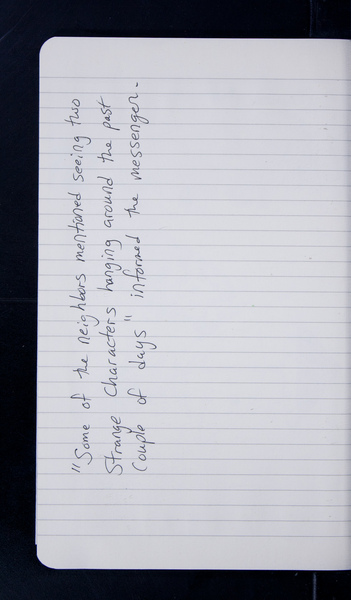 "Some of the neighbors mentioned seeing two
Strange characters hanging around the past
Couple of days" informed the messenger.